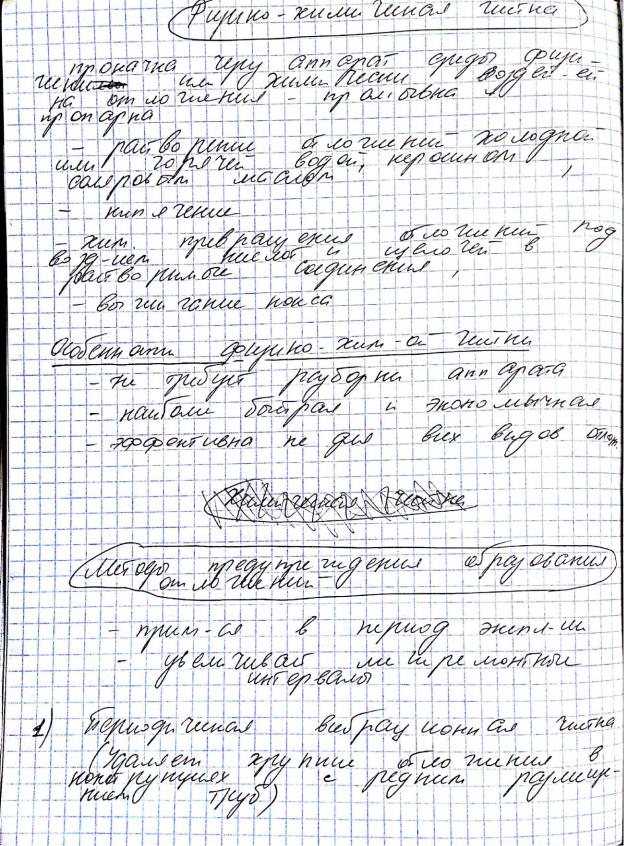 Физико-химическая чистка
прокачка через аппарат среды физи-
чески или химически воздей-ей
на отложения - промывка,
пропарка
- растворение отложений холодной
или горячей водой, керосином,
соляровым маслом
- кипячение
- хим превращения отложений под
возд-ием кислот и щелочей в
растворимые соединения,
- выжигание кокса
Особенности физико-хим-ой чистки
- не требует разборки аппарата
- наиболее быстрая и экономычная
- эффективна не для всех видов отлож.
Химическая чистка
Методы предупреждения образования
отложений
- прим-ся в период экспл-ии
- увеличивает межремонтной
интервалы
1) Периодическая вибрационная чистка
(Удаляет хрупкие отложения в
конструкциях с редким размеще-
нием труб)